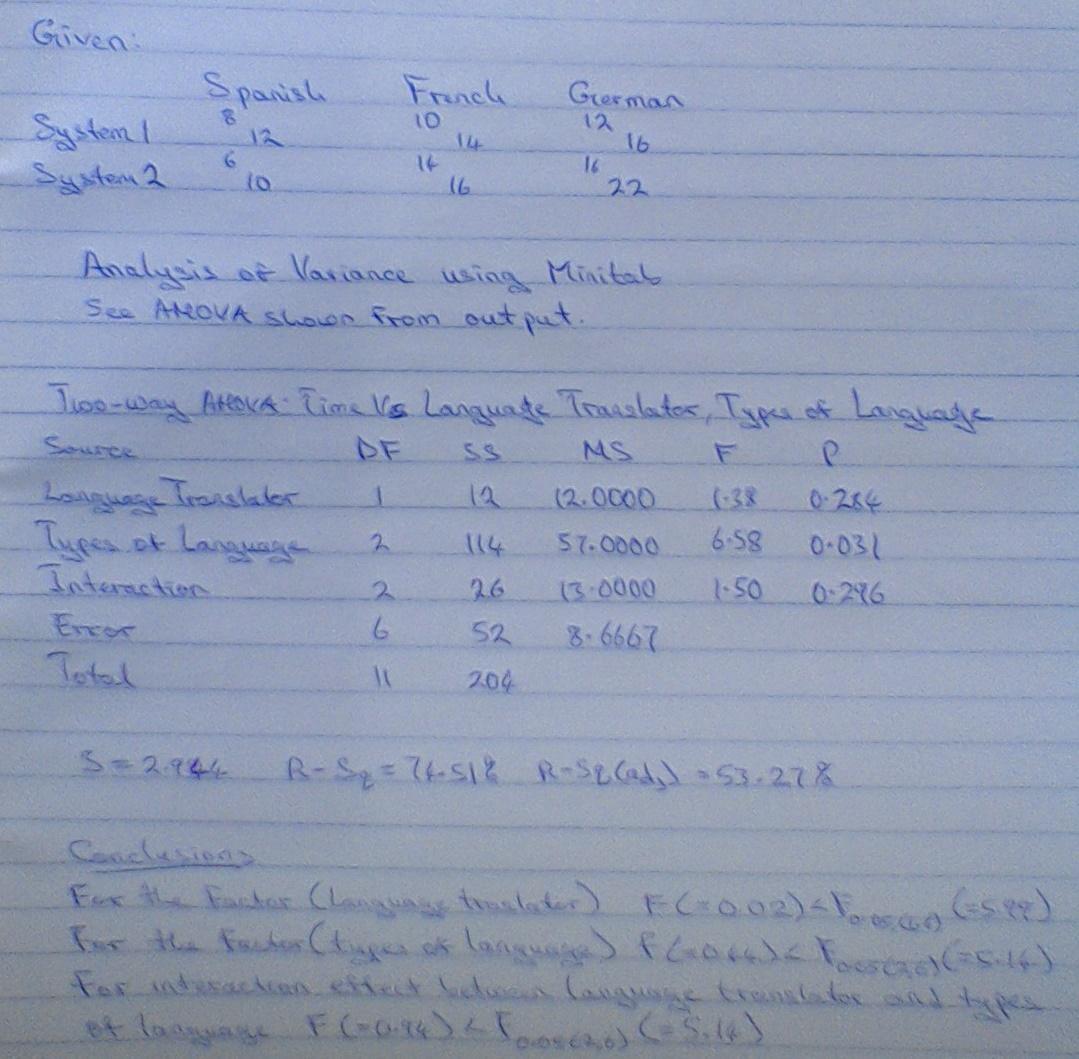 Given:
Spanish French German
8 10 12
System 1 12 14 16
6 14 16
System 2 10 16 22
Analysis of Variance using Minitab
See ANOVA shown from output.
Two-way ANOVA: Time Vs Language Translator, Types of Language
Source DF SS MS F P
Language Translator 1 12 12.0000 1.38 0.284
Types of Language 2 114 57.0000 6.58 0.031
Interaction 2 26 13.0000 1.50 0.296
Error 6 52 8.6667
Total 11 204
S = 2.944 R-Sq = 74.51% R-Sq(adj) = 53.27%
Conclusions
For the Factor (Language translator) F(=0.02) < F0.05(1,6) (=5.99)
For the Factor (types of language) F(=0.64) < F0.05(2,6) (=5.14)
For interaction effect between language translator and types
of language F(=0.94) < F0.05(2,6) (=5.14)